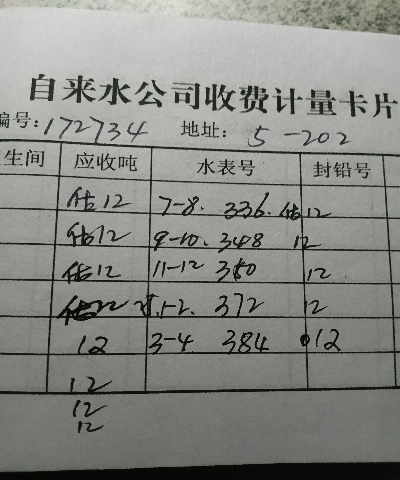 自来水公司收费计量卡片
编号:172734 地址: 5-202
生间 应收吨 水表号 封铅号
估12 7-8. 336. 估12
估12 9-10. 348 12
估12 11-12 360 12
1-2. 372 12
12 3-4. 384 12
12
12
12